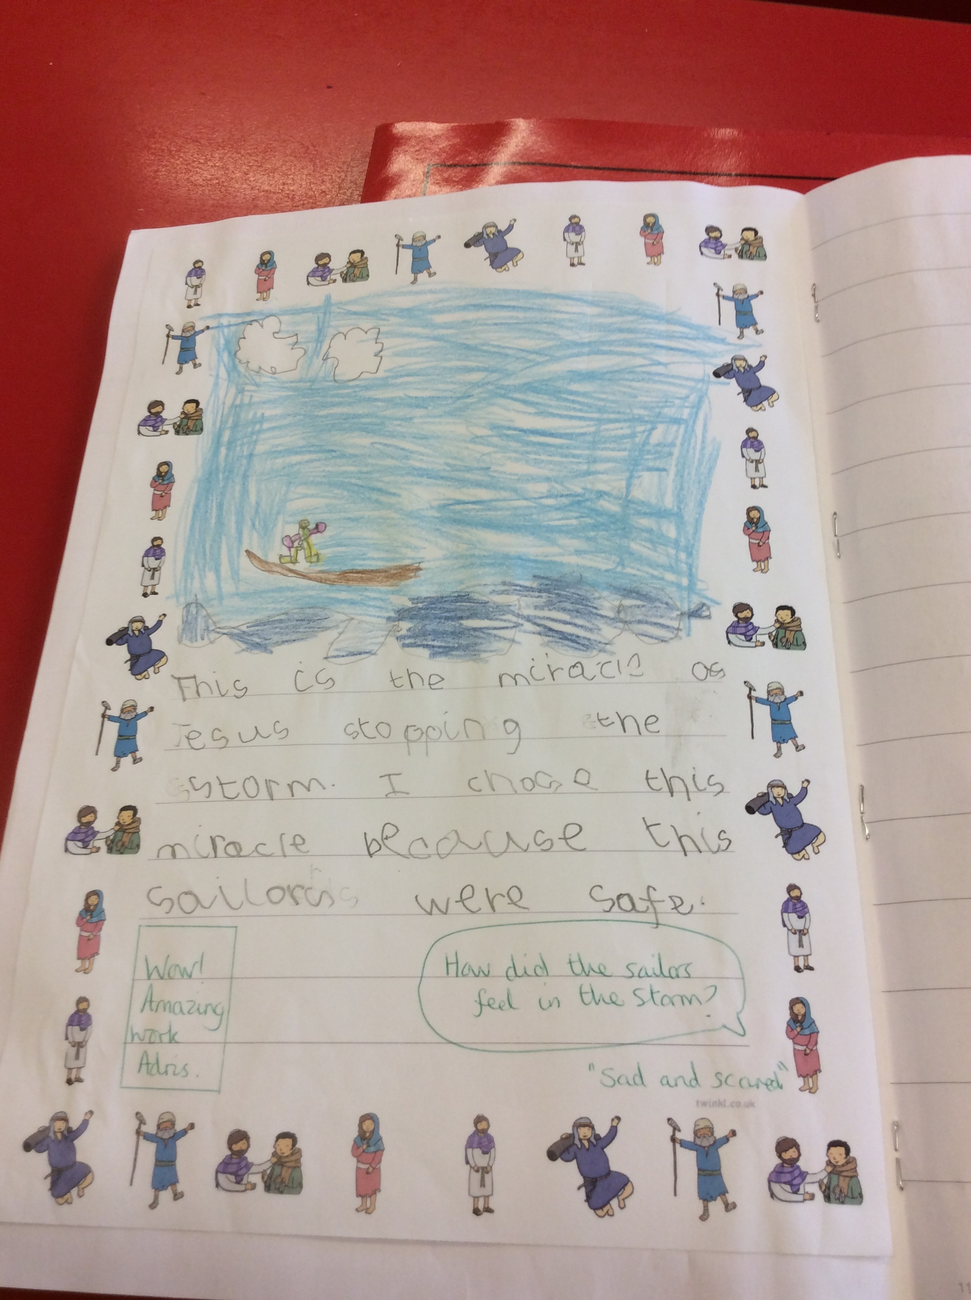 This is the miracle os
Jesus stopping the
storm. I chose this
miracle because this
sailors were safe.
Wow!
Amazing
work
Adris.
How did the sailors
feel in the storm?
"Sad and scared"
twinkl.co.uk
11